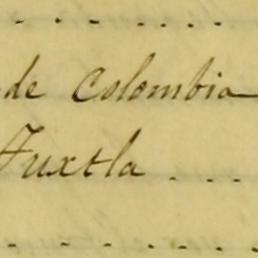 de Colombia
Tuxtla . . .